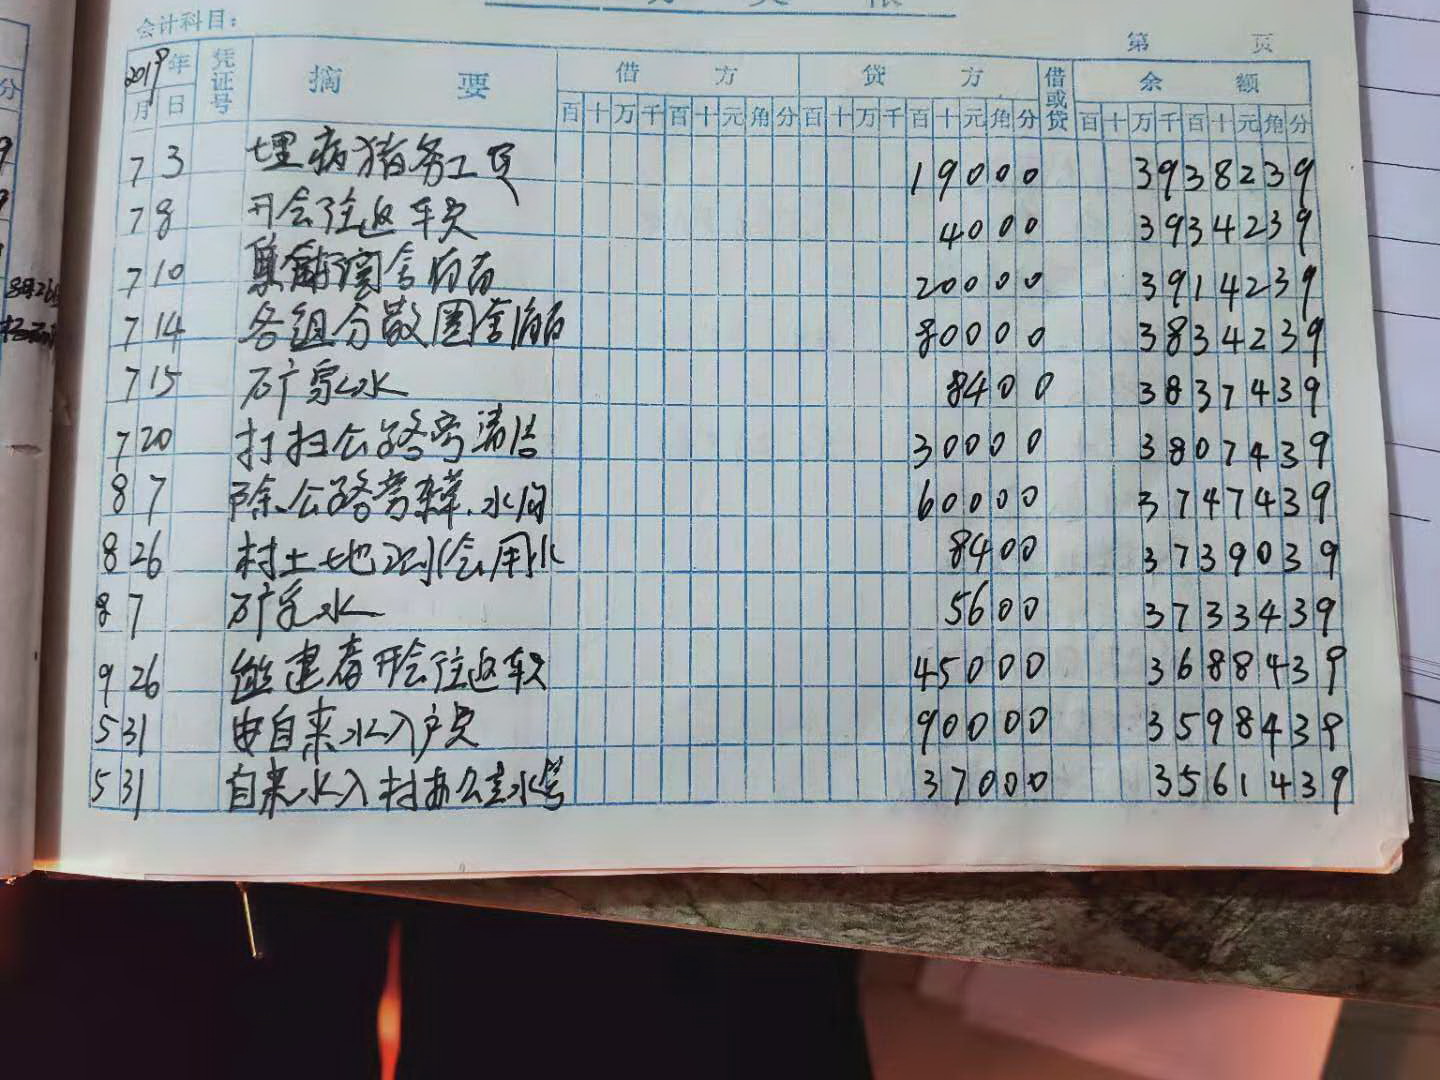 会计科目：
第 页
2019年 凭证号 摘 要 借 方 贷 方 借或贷 余 额
月 日 百十万千百十元角分 百十万千百十元角分 百十万千百十元角分
7 3 埋病猪务工费 19000 3938239
7 8 开会往返车费 4000 3934239
7 10 20000 3914239
7 14 各组分散圈舍消毒 80000 3834239
7 15 矿泉水 8400 3837439
7 20 打扫公路旁清洁 30000 3807439
8 7 除公路旁杂草.水沟 60000 3747439
8 26 村土地 会用水 8400 3739039
8 7 矿泉水 5600 3733439
9 26 建者开会往返车费 45000 3688439
5 31 安自来水入户费 90000 3598439
5 31 自来水入村办公室水管 37000 3561439